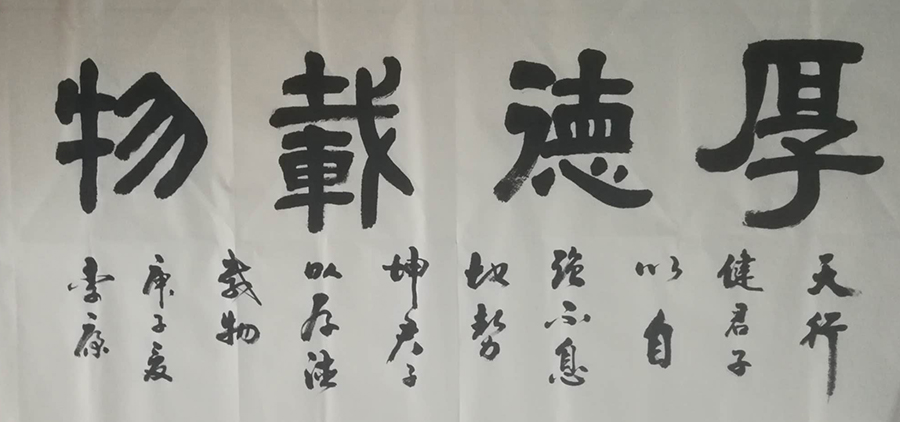 厚德載物
天行
健君子
以自
強不息
地勢
坤君子
以厚德
載物
庚子夏
李